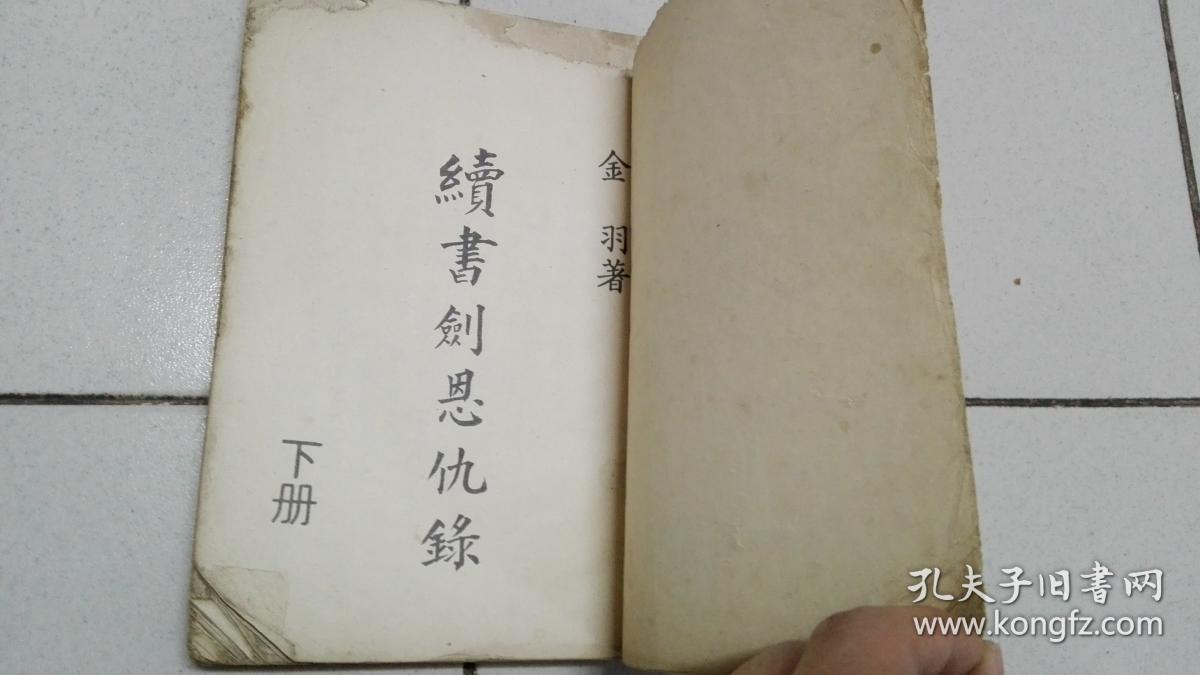 金羽著
續書劍恩仇錄
下册
孔夫子旧書网
www.kongfz.com